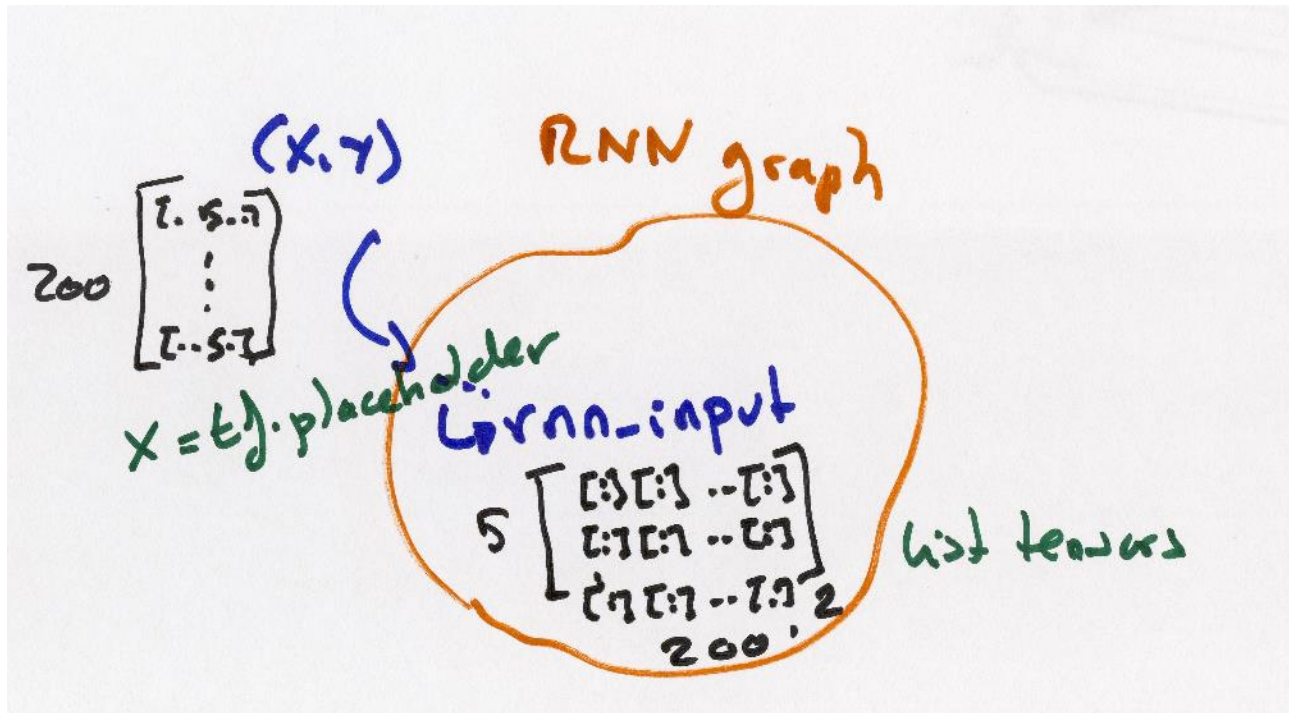 (X,Y)
RNN graph
200
[. 5 .]
[..5.]
X = tf.placeholder
rnn_input
5
[:] [:] .. [:]
[:] [:] .. [:]
[:] [:] .. [:]
200, 2
list tensors